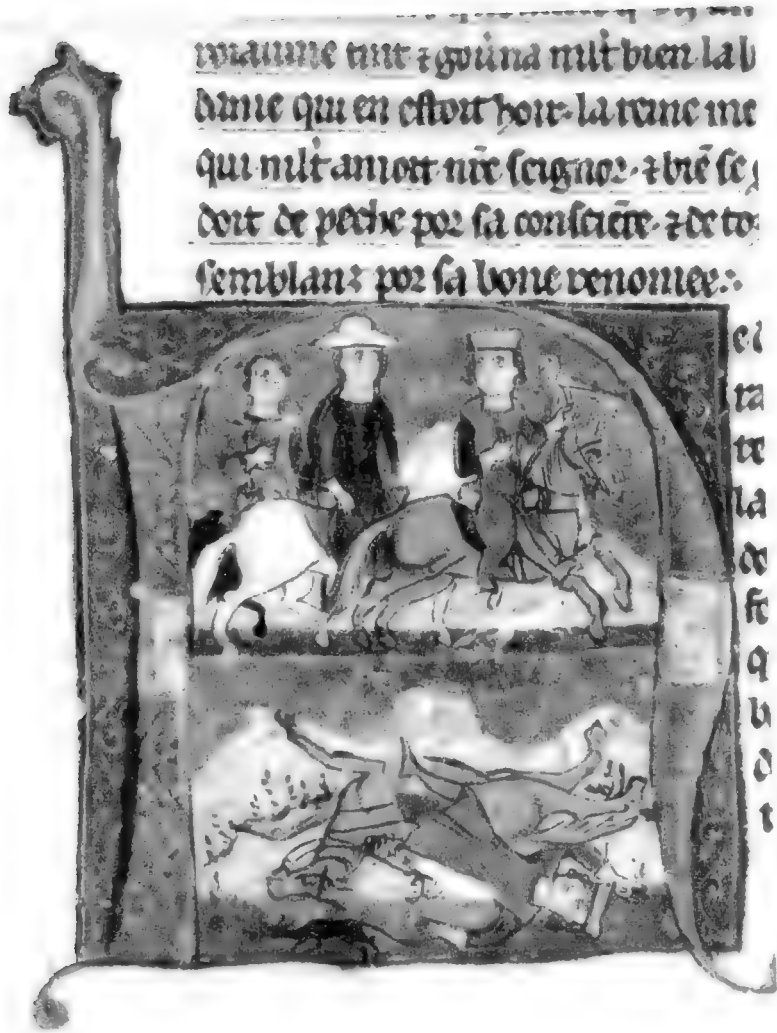 roiaume tint ⁊ gouũna ml̃t bien la b
dame qui en estoit hoir· la reine me
qui ml̃t amoit nr̃e seignor· ⁊ biẽ se g
doit de peche por sa consciẽce· ⁊ de to
semblanz por sa bone renomee·:
el
ra
te
la
de
st
q
b
d
t